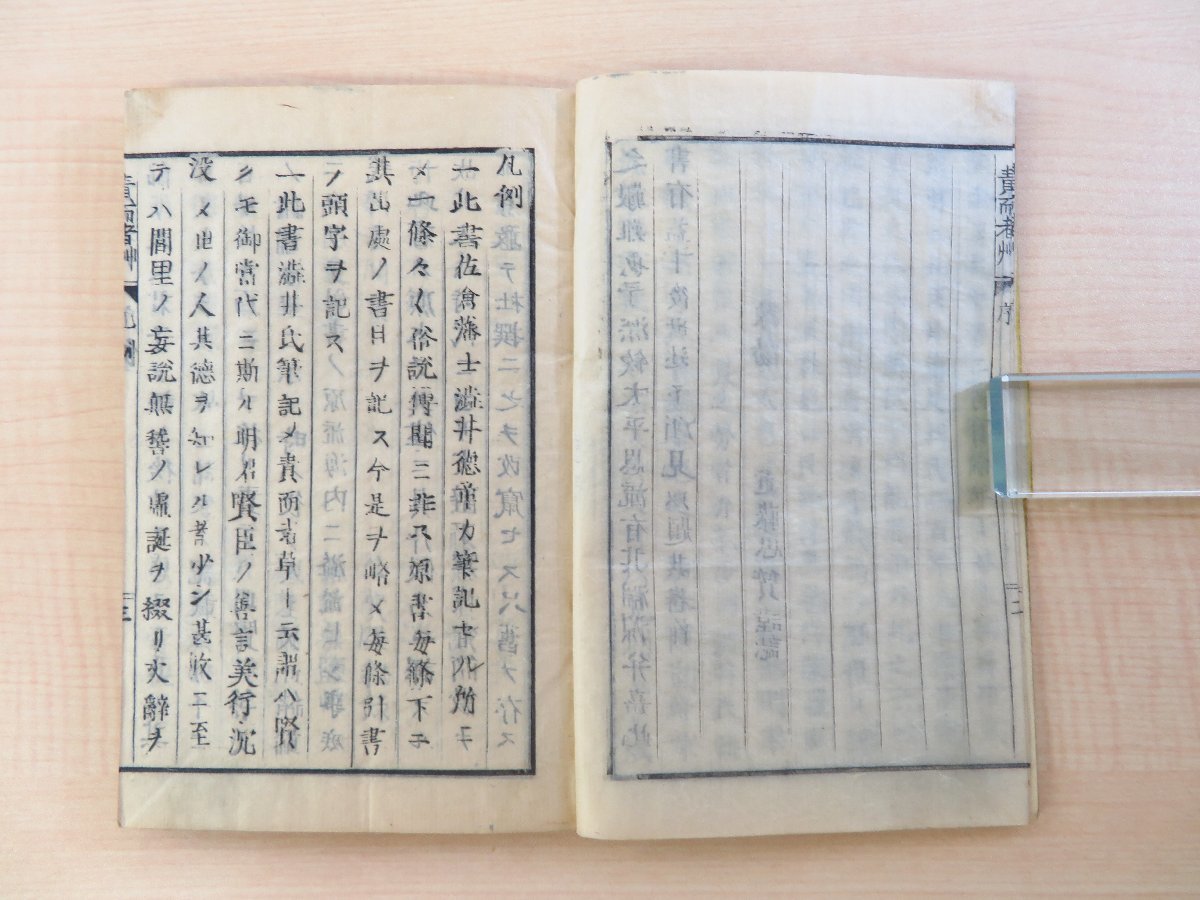 責而者艸
序
二
凡例
一此書佐倉藩士澁井徳章カ筆記セル所ニ
〆一條々々俗説傳聞ニ非ス原書毎條下ニ
其出處ノ書目ヲ記ス今是ヲ略〆毎條引書
ノ頭字ヲ記ス
一此書澁井氏筆記〆責而者草ト云謂ハ賢
クモ御當代ニ斯ル明君賢臣ノ善言美行沉
没〆世ノ人其德ヲ知レル者少シ甚敷ニ至
テハ閭里ノ妄説無稽ノ虚誕ヲ綴リ文辭ヲ
責而者艸
凡例
三